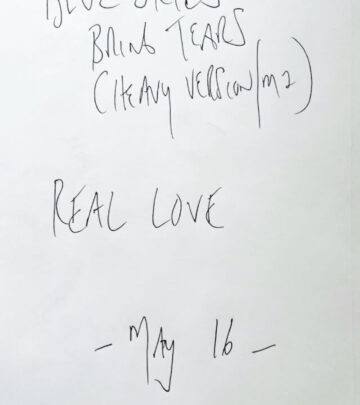 BLUE SKIES
BRING TEARS
(HEAVY VERSION/M2)
REAL LOVE
- MAY 16 -